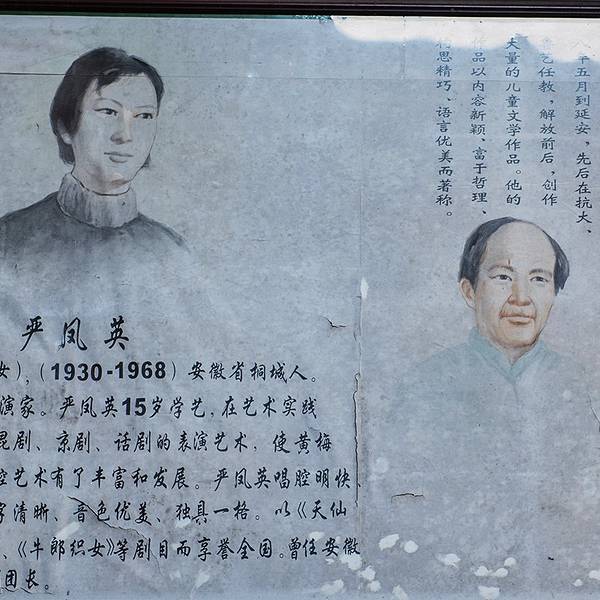 严凤英
女），（1930-1968）安徽省桐城人。
演家。严凤英15岁学艺，在艺术实践
昆剧、京剧、话剧的表演艺术，使黄梅
腔艺术有了丰富和发展。严凤英唱腔明快、
字清晰、音色优美、独具一格。以《天仙
、《牛郎织女》等剧目而享誉全国。曾任安徽
团长。
八年五月到延安，先后在抗大、
鲁艺任教，解放前后，创作
大量的儿童文学作品。他的
作品以内容新颖、富于哲理、
构思精巧、语言优美而著称。